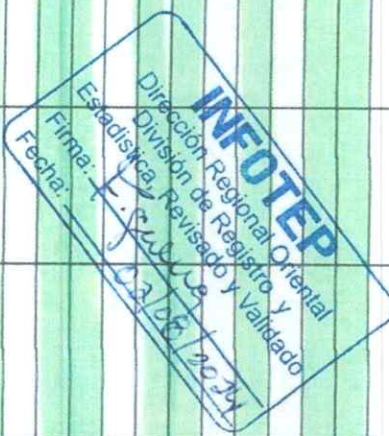 INFOTEP
Dirección Regional Oriental
División de Registro y
Estadística, Revisado y Validado
Firma:
Fecha: 02/08/2024